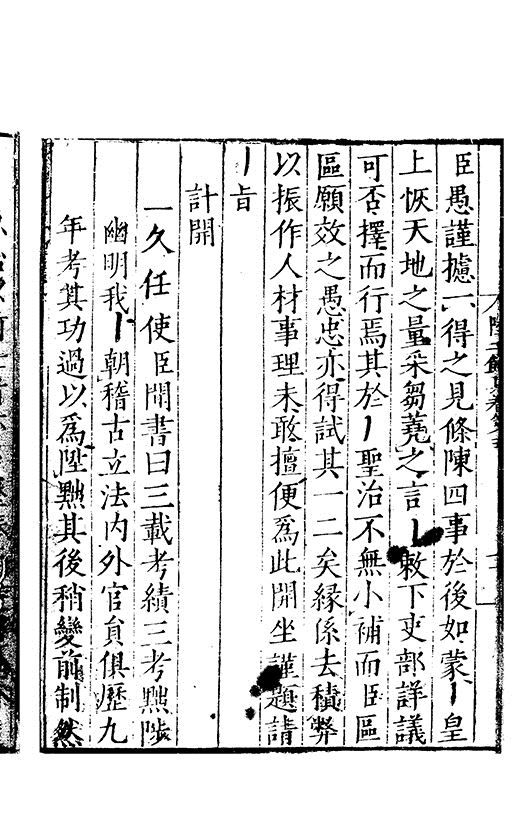 臣愚謹攄一得之見條陳四事於後如蒙皇
上恢天地之量采芻蕘之言敕下吏部詳議
可否擇而行焉其於聖治不無小補而臣區
區願效之愚忠亦得試其一二矣緣係去積弊
以振作人材事理未敢擅便爲此開坐謹題請
旨
計開
一久任使臣聞書曰三載考績三考黜陟
幽明我朝稽古立法內外官員俱歷九
年考其功過以爲陞黜其後稍變前制然